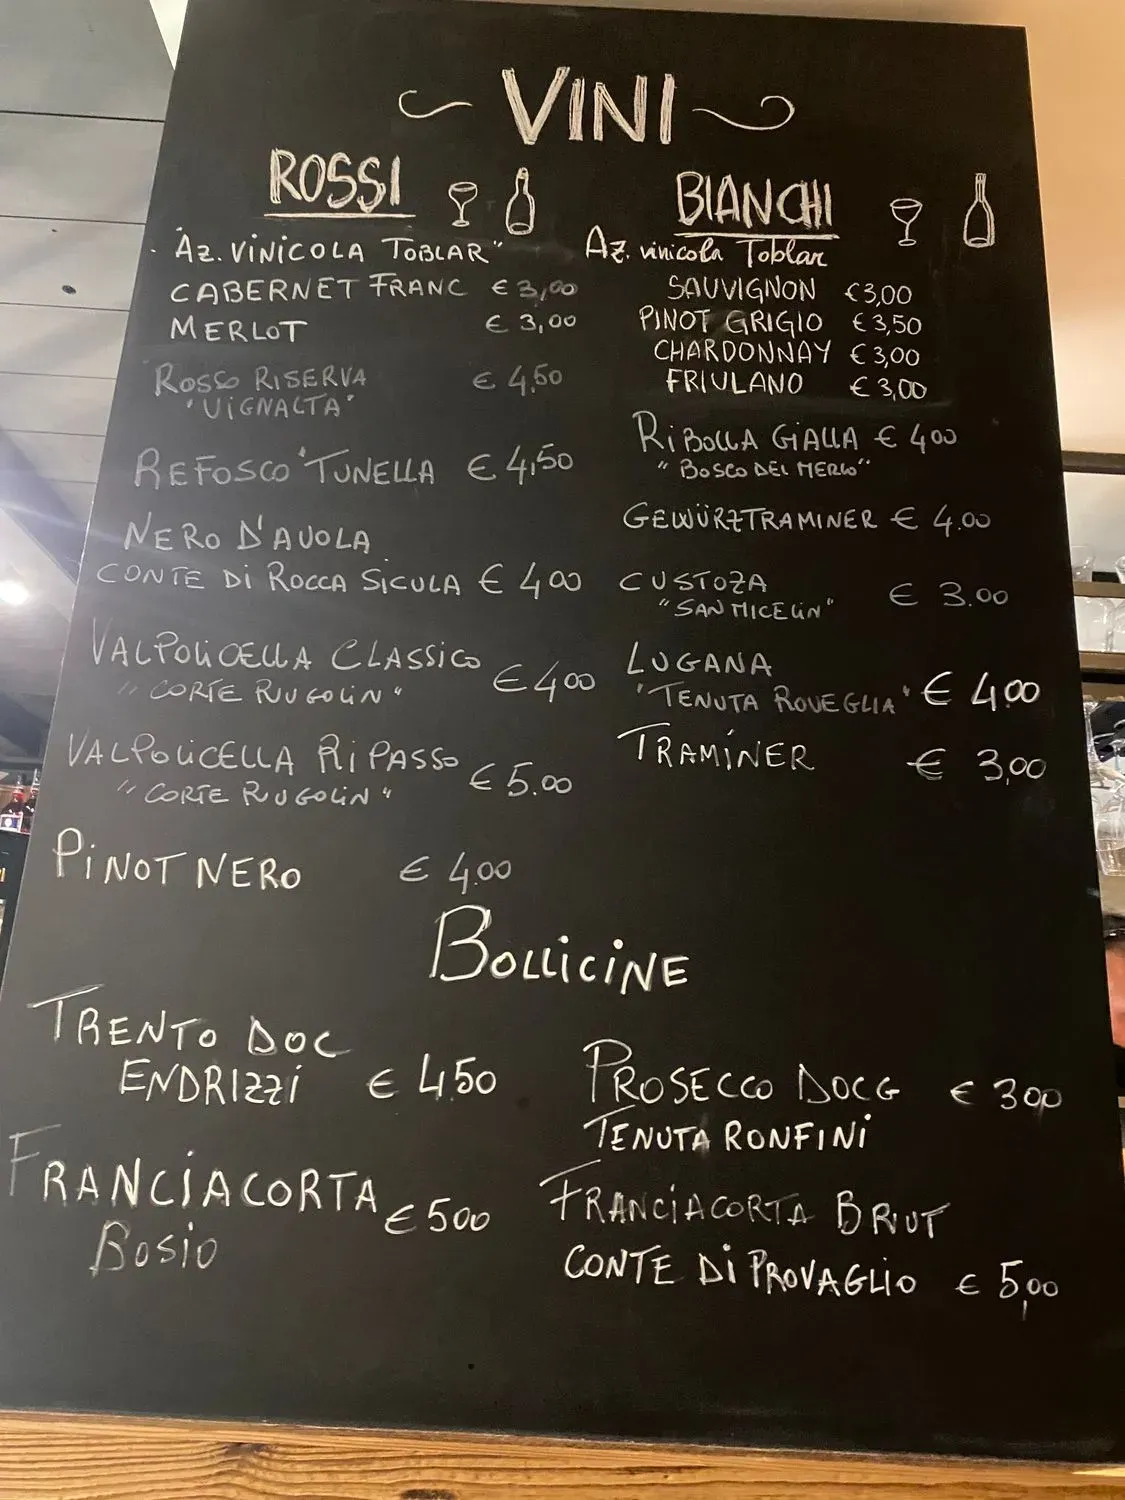 VINI
ROSSI
"AZ. VINICOLA TOBLAR"
CABERNET FRANC € 3,00
MERLOT € 3,00
ROSSO RISERVA € 4,50
"VIGNALTA"
REFOSCO "TUNELLA € 4,50
NERO D'AVOLA
CONTE Di ROCCA SICULA € 400
VALPOLICELLA CLASSICO € 400
"CORTE RUGOLIN"
VALPOLICELLA RIPASSO € 5.00
"CORTE RUGOLIN"
PINOT NERO € 4.00
BIANCHI
Az. vinicola Toblar
SAUVIGNON €3,00
PINOT GRIGIO € 3,50
CHARDONNAY € 3,00
FRIULANO € 3,00
RIBOLLA GIALLA € 400
"BOSCO DEL MERLO"
GEWÜRZTRAMINER € 4.00
CUSTOZA € 3.00
"SAN MICELIN"
LUGANA
"TENUTA ROVEGLIA" € 400
TRAMINER € 3,00
BOLLICINE
TRENTO DOC
ENDRIZZI € 4.50
FRANCIACORTA € 500
BOSIO
PROSECCO DOCG € 300
TENUTA RONFINI
FRANCIACORTA BRUT
CONTE Di PROVAGLIO € 5,00